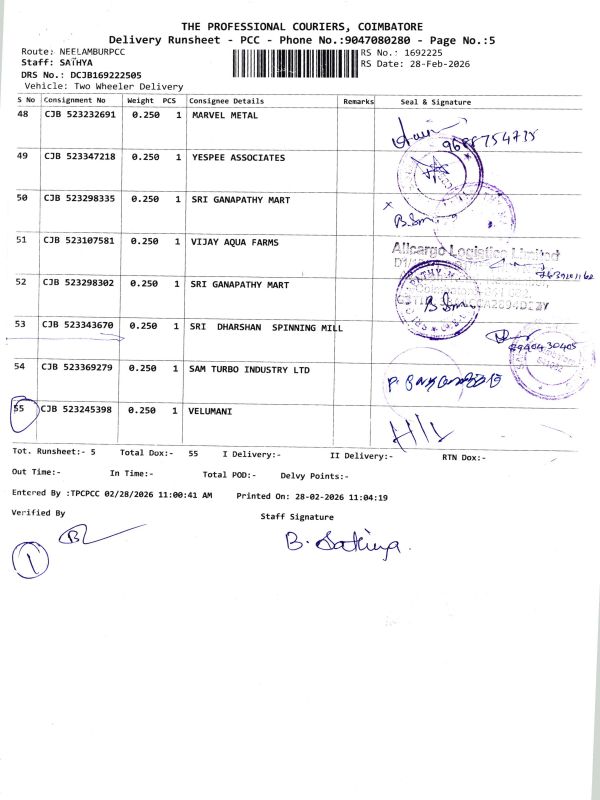 THE PROFESSIONAL COURIERS, COIMBATORE
Delivery Runsheet - PCC - Phone No.:9047080280 - Page No.:5
Route: NEELAMBURPCC
RS No.: 1692225
Staff: SATHYA
RS Date: 28-Feb-2026
DRS No.: DCJB169222505
Vehicle: Two Wheeler Delivery
S No Consignment No Weight PCS Consignee Details Remarks Seal & Signature
48 CJB 523232691 0.250 1 MARVEL METAL
49 CJB 523347218 0.250 1 YESPEE ASSOCIATES
50 CJB 523298335 0.250 1 SRI GANAPATHY MART
B.Sm
51 CJB 523107581 0.250 1 VIJAY AQUA FARMS
Allcargo Logistics Limited
52 CJB 523298302 0.250 1 SRI GANAPATHY MART
B.Sm
53 CJB 523343670 0.250 1 SRI DHARSHAN SPINNING MILL
54 CJB 523369279 0.250 1 SAM TURBO INDUSTRY LTD
55 CJB 523245398 0.250 1 VELUMANI
Tot. Runsheet:- 5 Total Dox:- 55 I Delivery:- II Delivery:- RTN Dox:-
Out Time:- In Time:- Total POD:- Delvy Points:-
Entered By :TPCPCC 02/28/2026 11:00:41 AM Printed On: 28-02-2026 11:04:19
Verified By
Staff Signature
B. Sathiya.
1